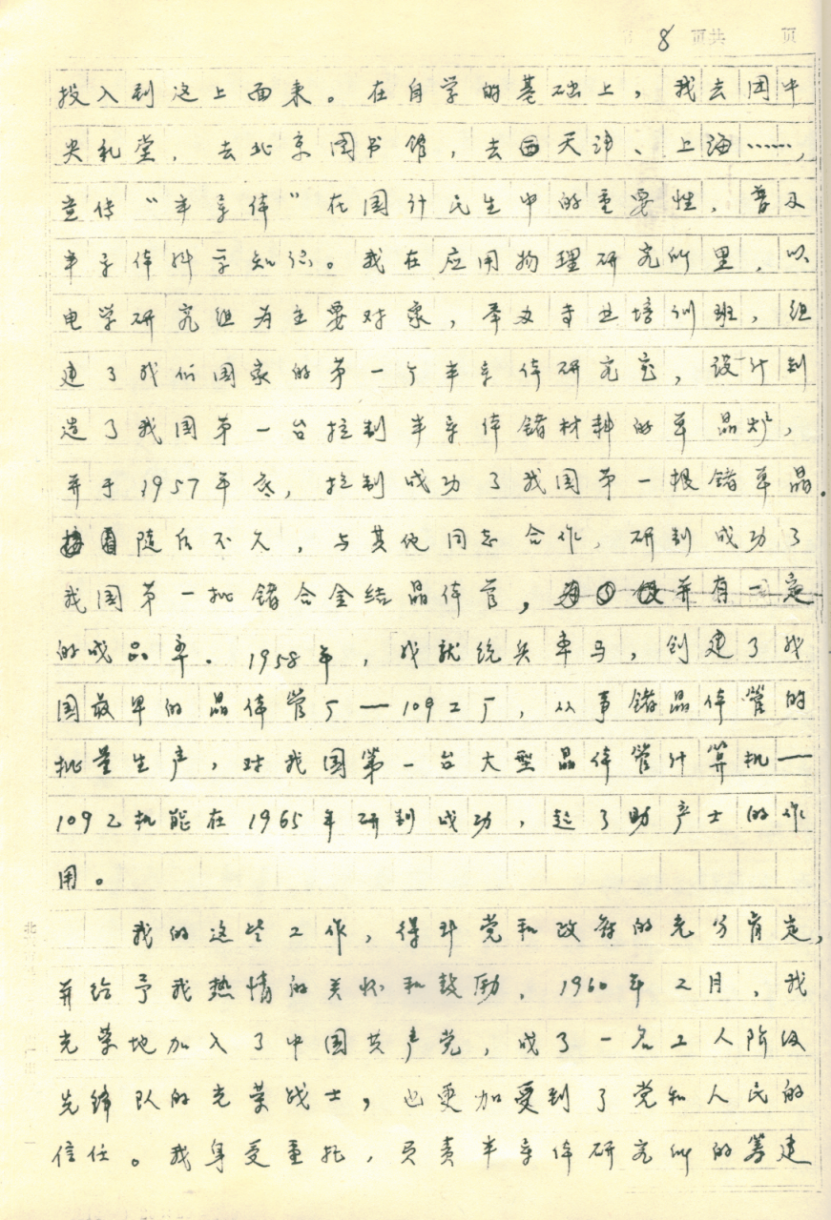 8 页共 页
投入到这上面来。在自学的基础上，我去团中
央礼堂，去北京图书馆，去天津、上海……，
宣传“半导体”在国计民生中的重要性，普及
半导体科学知识。我在应用物理研究所里，以
电学研究组为主要对象，举办专业培训班，组
建了我们国家的第一个半导体研究室，设计制
造了我国第一台拉制半导体锗材料的单晶炉，
并于1957年底，拉制成功了我国第一根锗单晶。
随后不久，与其他同志合作，研制成功了
我国第一批锗合金结晶体管，并有一定
的成品率。1958年，我就统领军马，创建了我
国最早的晶体管厂—109工厂，从事锗晶体管的
批量生产，对我国第一台大型晶体管计算机—
109乙机能在1965年研制成功，起了助产士的作
用。
我的这些工作，得到党和政府的充分肯定，
并给予我热情的关怀和鼓励，1960年二月，我
光荣地加入了中国共产党，成了一名工人阶级
先锋队的光荣战士，也更加受到了党和人民的
信任。我身受重托，负责半导体研究所的筹建